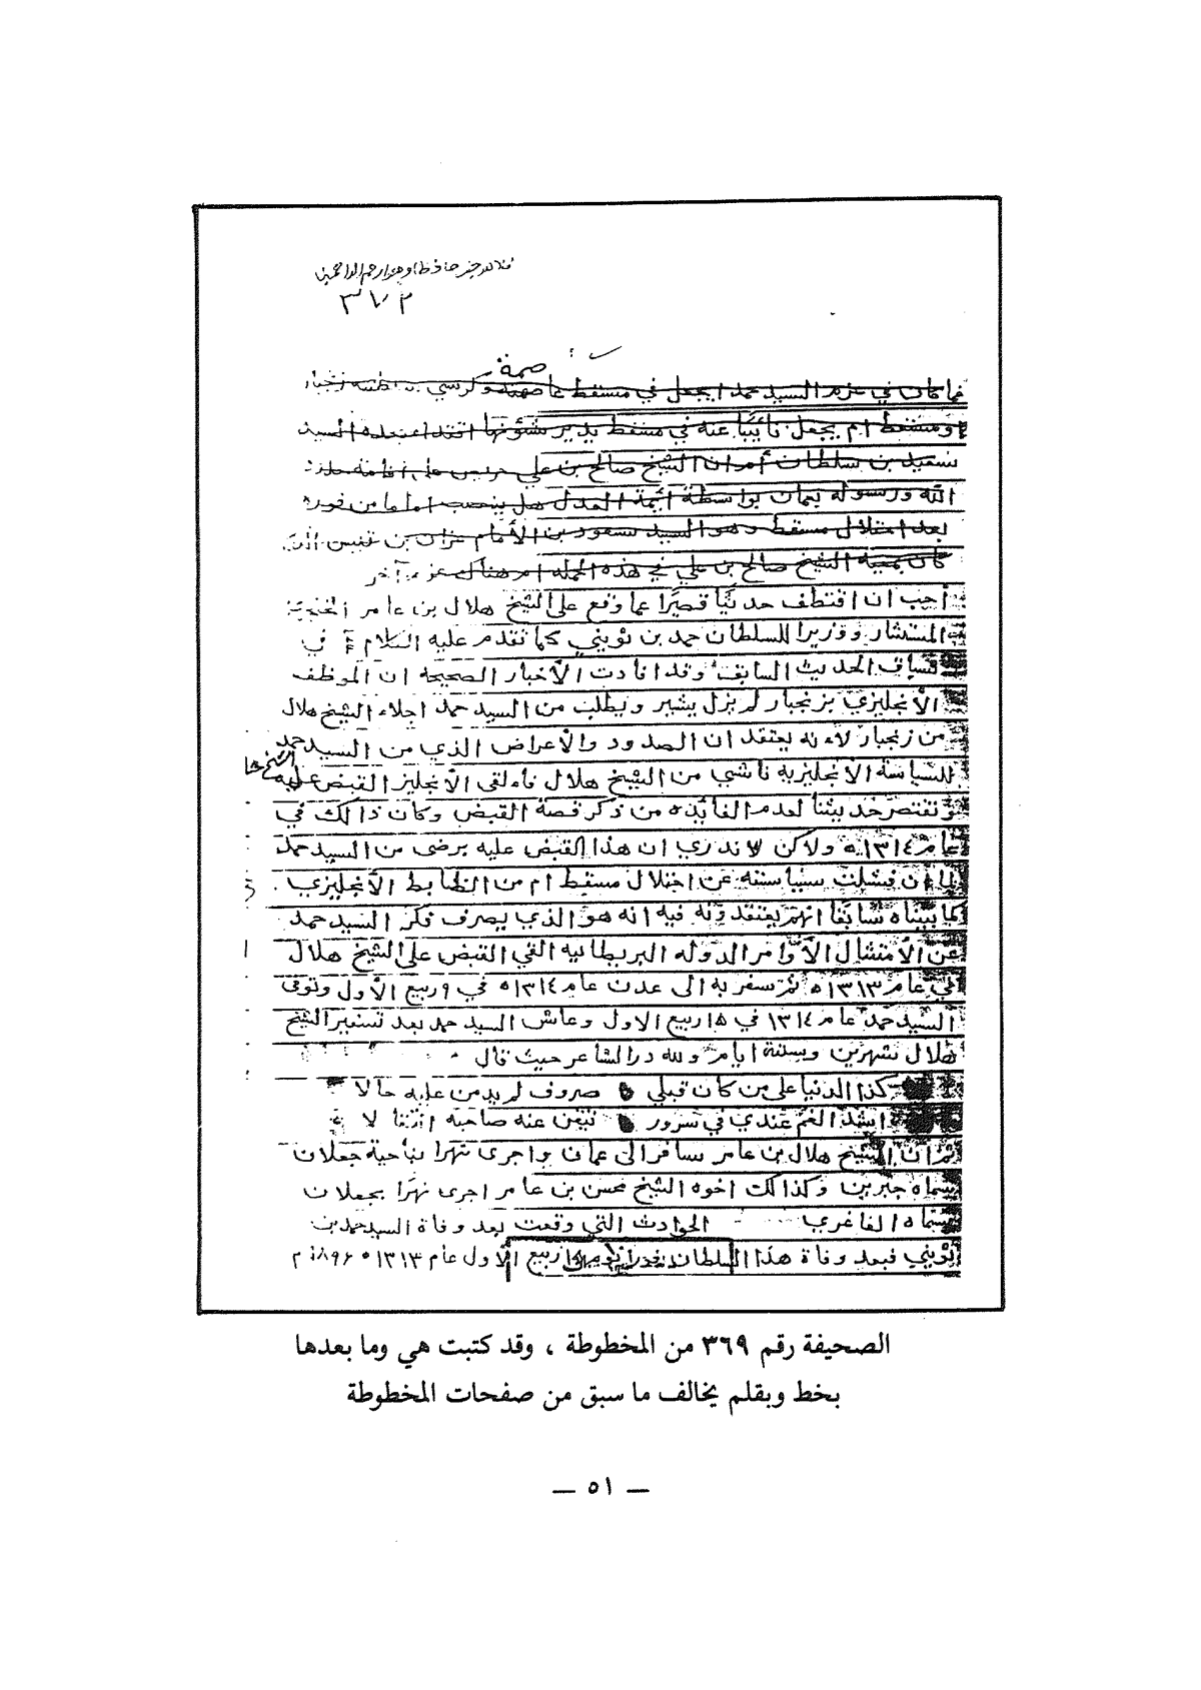 فالله خير حافظا وهو ارحم الراحمين
٣٧٢
صمة
فما كان في عزم السيد حمد ايجعل في مسقط عاصمة وكرسي زنجبار
ومسقط ام يجعل نائبًا عنه في مسقط يدير شئونها السيد
سعيد بن سلطان أم ان الشيخ صالح بن علي
الله ورسوله بعمان بواسطة ائمة العدل هل ينصب اماما من فوره
بعد احتلال مسقط وهو السيد سعود بن الأمام عزان بن قيس الذي
كان بمعية الشيخ صالح بن علي في هذه الحمله ام هناك عزم آخر
أحب ان اقتطف حديثًا قصيرًا عما وقع على الشيخ هلال بن عامر
المستشار ووزيرا للسلطان حمد بن ثويني كما تقدم عليه الكلام في
سياق الحديث السابق وقد افادت الأخبار الصحيحه ان الموظف
الأنجليزي بزنجبار لم يزل يشير ويطلب من السيد حمد اجلاء الشيخ هلال
من زنجبار لاءنه يعتقد ان الصدود والأعراض الذي من السيد حمد
للسياسة الأنجليزيه ناشي من الشيخ هلال فاءلقى الأنجليز القبض عليه
ونقتصر حديثنا لعدم الفائده من ذكر قصة القبض وكان ذالك في
عام ١٣١٤ه ولاكن لا ندري ان هذا القبض عليه برضى من السيد حمد
لما ان فشلت سياسته عن احتلال مسقط ام من الظابط الأنجليزي
كما بيناه سابقا انهم يعتقدونه فيه انه هو الذي يصرف فكر السيد حمد
عن الأمتثال الأوامر الدوله البريطانيه القي القبض على الشيخ هلال
في عام ١٣١٣ه ثم سفر به الى عدن عام ١٣١٤ه في ٩ ربيع الأول وتوفى
السيد حمد عام ١٣١٤ في ١٥ ربيع الاول وعاش السيد حمد بعد تسفير الشيخ
هلال شهرين وستة ايام ولله در الشاعر حيث قال
كذا الدنيا على من كان قبلي صروف لم يدمن عليه حالا
اشد الغم عندي في سرور تيقن عنه صاحبه انتقالا
ثم ان الشيخ هلال بن عامر سافر الى عمان واجرى نهرا بناحية جعلان
سماه جبرين وكذالك اخوه الشيخ محسن بن عامر اجرى نهرًا بجعلان
سماه الفاغري الحوادث التي وقعت بعد وفاة السيد حمد بن
ثويني فبعد وفاة هذا السلطان ربيع الأول عام ١٣١٣ه ١٨٩٦م
الصحيفة رقم ٣٦٩ من المخطوطة ، وقد كتبت هي وما بعدها
بخط وبقلم يخالف ما سبق من صفحات المخطوطة
— ٥١ —